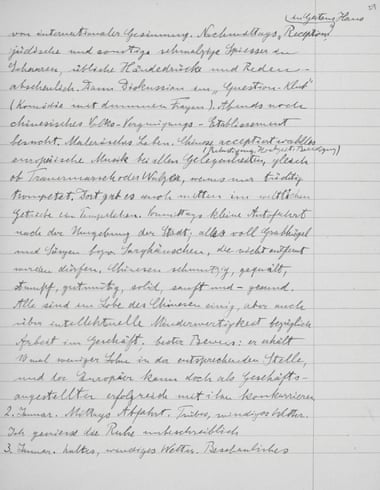 (in Gatons Haus
von internationaler Gesinnung. Nachmittags, Reception)
jüdische und sonstige schmalzige Spiesser in
Scharen, übliche Händedrücke und Reden –
abscheulich. Dann Diskussion im „Question-Klub"
(Komödie mit dummen Fragen). Abends noch
chinesisches Volks-Vergnügungs-Etablissement
besucht. Malerisches Leben. Chinese acceptiert wahllos
(Beleidigung, Hochzeit, Beerdigung)
europäische Musik bei allen Gelegenheiten, gleich
ob Trauermarsch oder Walzer, wenns nur tüchtig
trompetet. Dort gab es auch mitten im weltlichen
Getriebe ein Tempelchen. Vormittags kleine Autofahrt
nach der Umgebung der Stadt; alles voll Grabhügel
und Särgen bezw. Sarghäuschen, die nicht entfernt
werden dürfen. Chinesen schmutzig, gequält,
stumpf, gutmütig, solid, sanft und – gesund.
Alle sind im Lobe des Chinesen einig, aber auch
über intellektuelle Minderwertigkeit bezüglich
Arbeit im Geschäft. bester Beweis: er erhält
10 mal weniger Lohn in der entsprechenden Stelle,
und der Europäer kann doch als Geschäfts-
angestellter erfolgreich mit ihm konkurrieren
2. Januar. Abfahrt. Trübes, windiges Wetter.
Ich geniesse die Ruhe unbeschreiblich
3. Januar. kaltes, windiges Wetter. Beschauliches